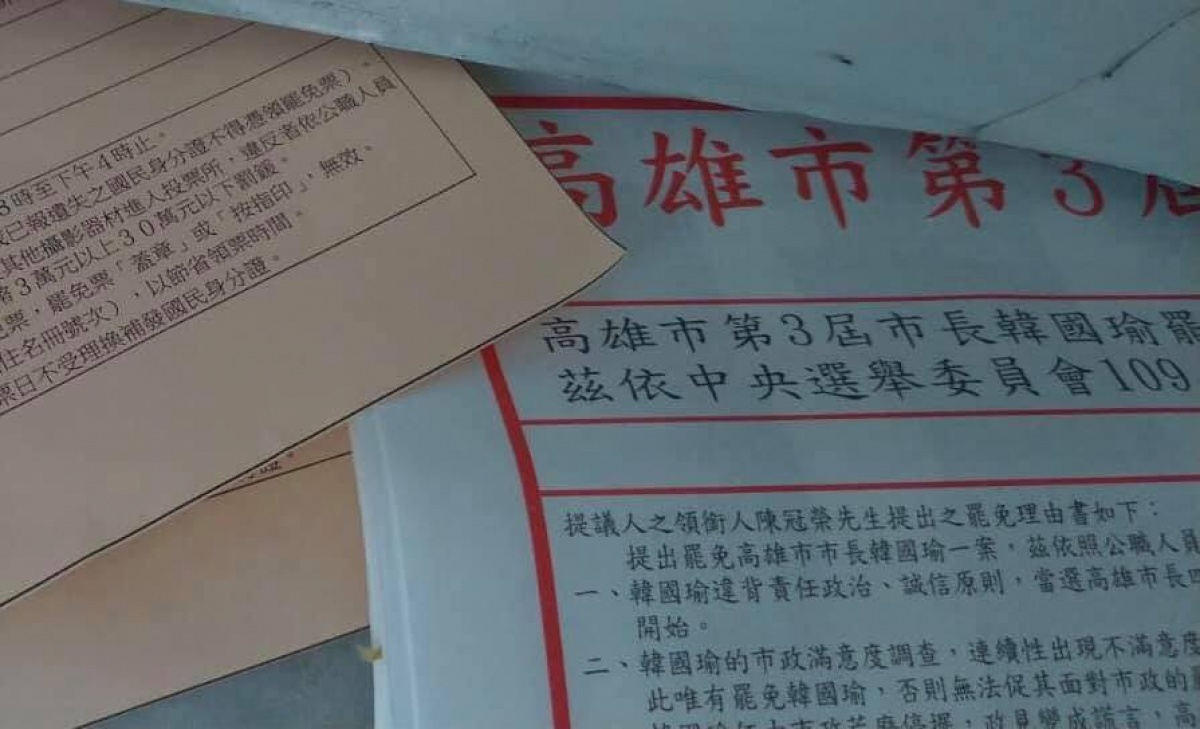 8時至下午4時止。
已報遺失之國民身分證不得憑領罷免票)。
其他攝影器材進入投票所,違反者依公職人員
3萬元以上30萬元以下罰鍰。
票,罷免票「蓋章」或「按指印」,無效。
名冊號次),以節省領票時間。
票日不受理換補發國民身分證。
高雄市第3屆
高雄市第3屆市長韓國瑜罷
茲依中央選舉委員會109
提議人之領銜人陳冠榮先生提出之罷免理由書如下:
提出罷免高雄市市長韓國瑜一案,茲依照公職人員
一、韓國瑜違背責任政治、誠信原則,當選高雄市長四
開始。
二、韓國瑜的市政滿意度調查,連續性出現不滿意度
此唯有罷免韓國瑜,否則無法促其面對市政的
市政荒廢停擺,政見變成謊言,高